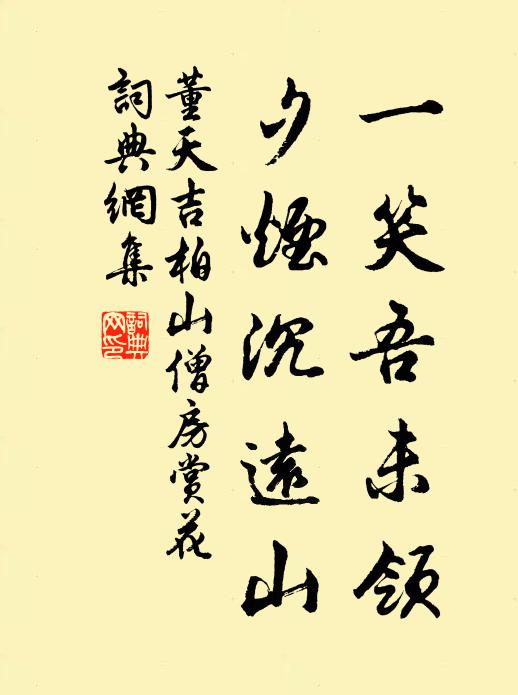 一笑吾未領
夕煙沉遠山
董天吉柏山僧房賞花
詞典網集
詞典网印